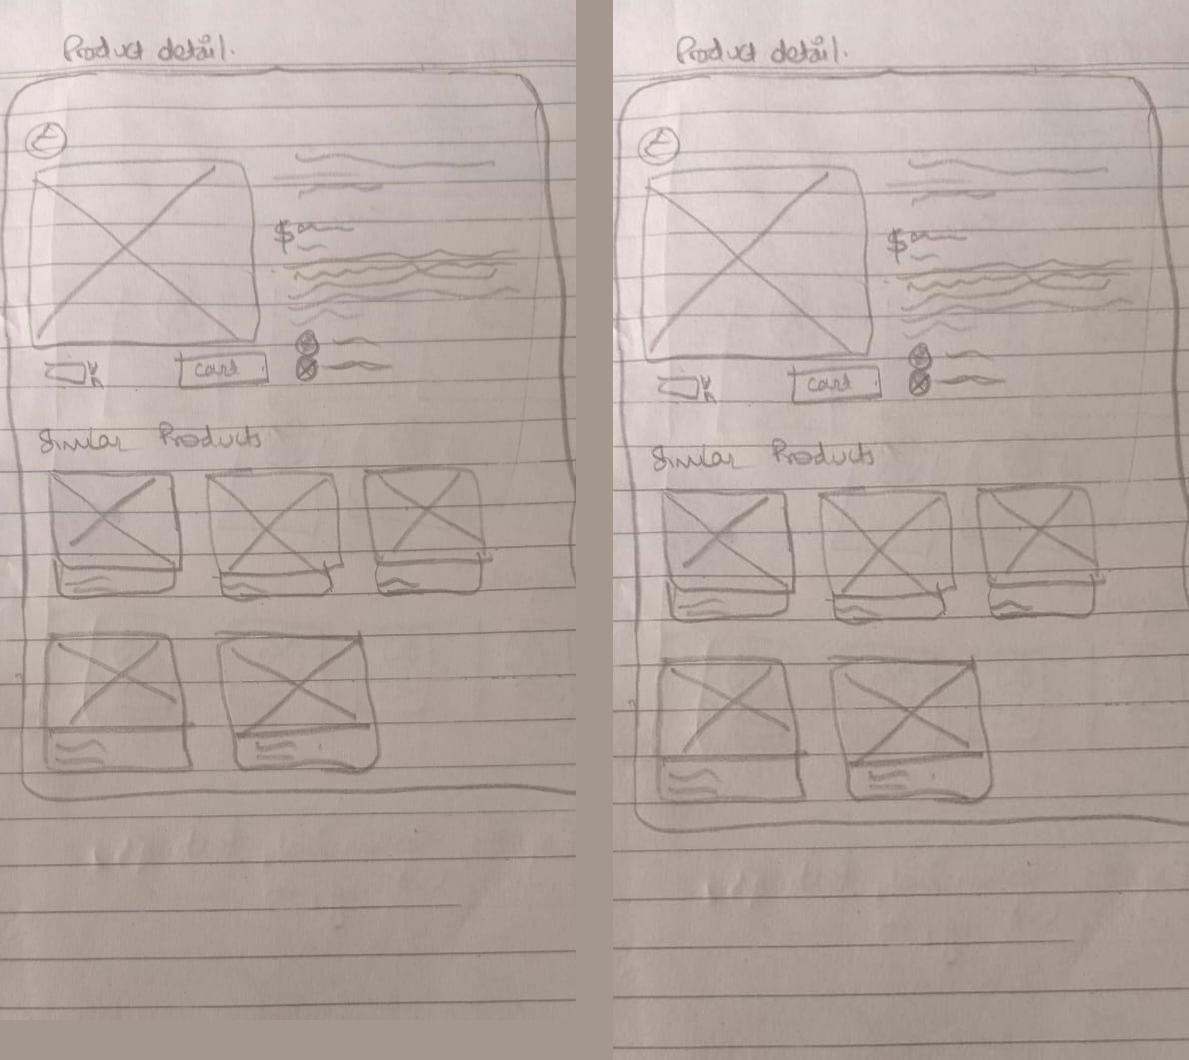 Product detail.
$
cart
Similar Products
Product detail.
$
cart
Similar Products